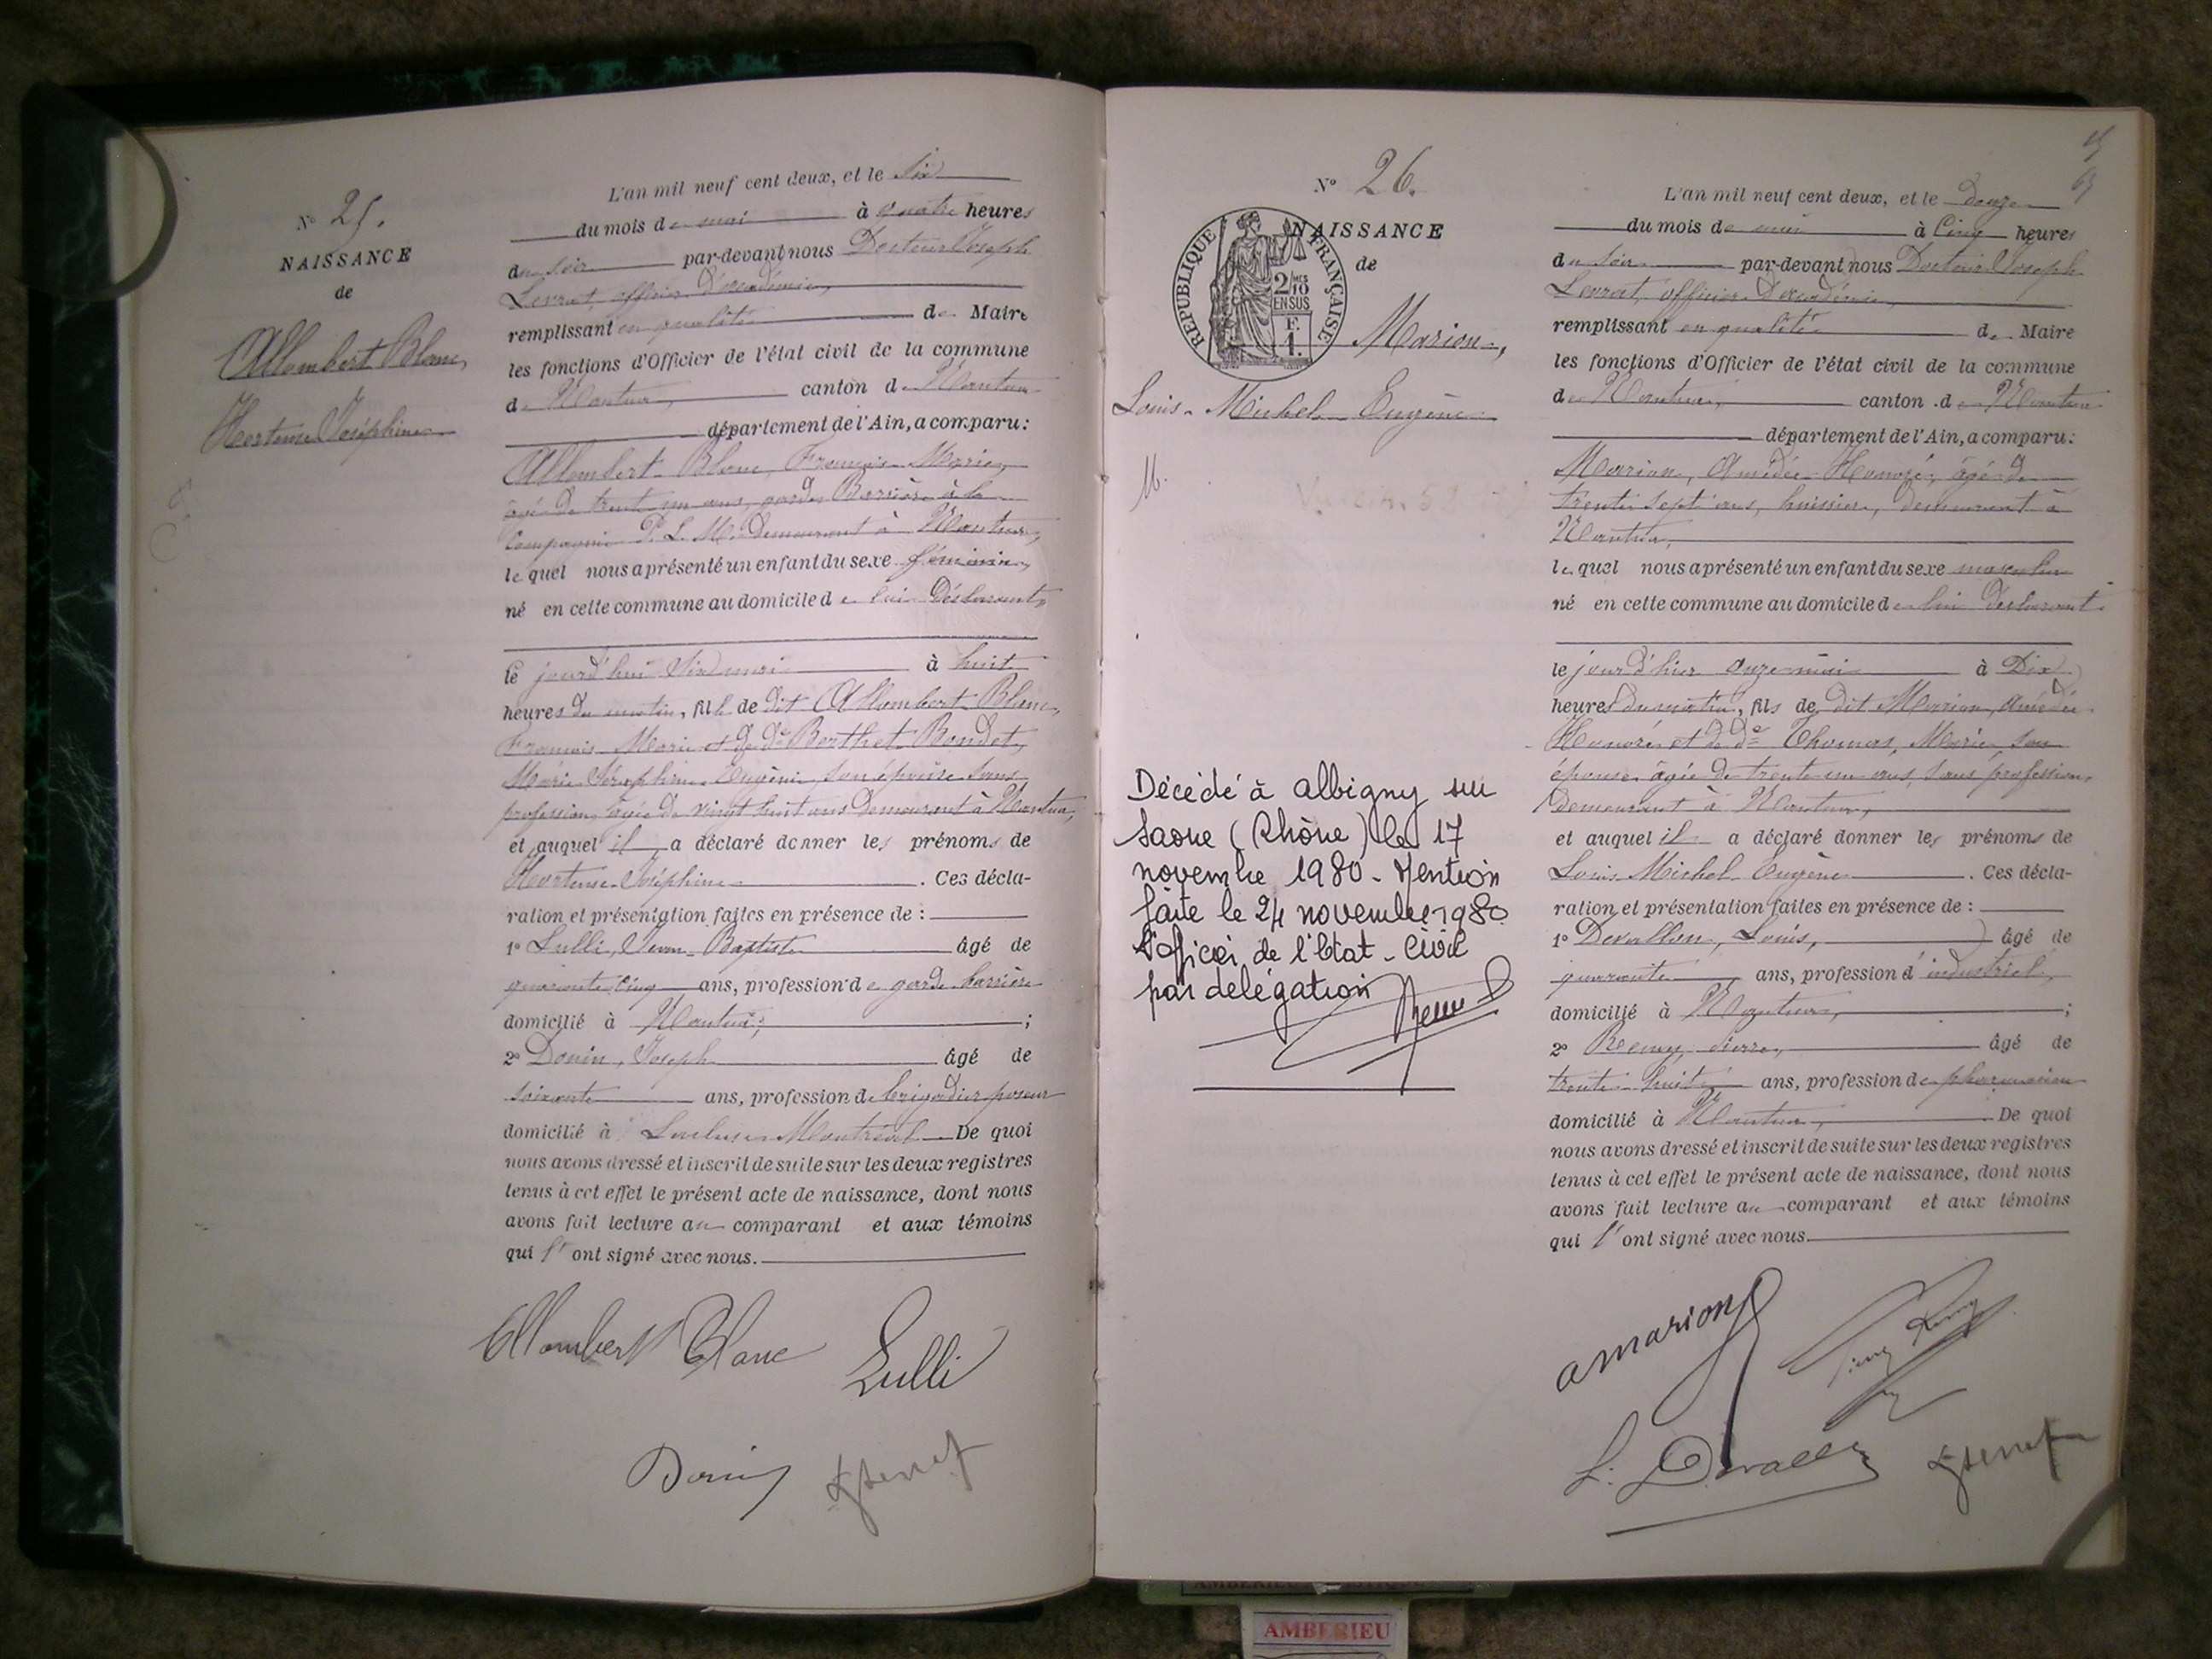 N° 25.
NAISSANCE
de
Allombert Blanc,
Hortense Joséphine
L'an mil neuf cent deux, et le Six
du mois de mai à quatre heures
du soir par-devant nous Docteur Joseph
Levrat, officier d'académie,
remplissant en qualité de Maire
les fonctions d'Officier de l'état civil de la commune
de Nantua, canton de Nantua
département de l'Ain, a comparu:
Allombert Blanc, François Marie,
âgé de trente un ans, garde Barrière à la
Compagnie P. L. M. demeurant à Nantua,
lequel nous a présenté un enfant du sexe féminin,
né en cette commune au domicile de lui Déclarant,
le jourd'hui Six mai à huit
heures du matin, fille de dit Allombert Blanc,
François Marie et de de Berthet Bondet,
Marie Séraphine Eugénie son épouse sans
profession, âgée de vingt huit ans demeurant à Nantua,
et auquel il a déclaré donner les prénoms de
Hortense Joséphine. Ces décla-
ration et présentation faites en présence de :
1° Lulli, Jean Baptiste âgé de
quarante cinq ans, profession de garde barrière
domicilié à Nantua ;
2° Donin, Joseph âgé de
soixante ans, profession de brigadier poseur
domicilié à Montréal De quoi
nous avons dressé et inscrit de suite sur les deux registres
tenus à cet effet le présent acte de naissance, dont nous
avons fait lecture au comparant et aux témoins
qui l'ont signé avec nous.
Allombert Blanc Lulli
Donin
N° 26.
NAISSANCE
de
REPUBLIQUE FRANÇAISE
2/10 MES
EN SUS
F.
1.
Marion,
Louis Michel Eugène
M.
Décédé à albigny sur
Saone (Rhône) le 17
novembre 1980 - Mention
faite le 24 novembre 1980
l'officier de l'Etat-Civil
par délégation
L'an mil neuf cent deux, et le douze
du mois de mai à Cinq heures
du soir par-devant nous Docteur Joseph
Levrat, officier d'académie,
remplissant en qualité de Maire
les fonctions d'Officier de l'état civil de la commune
de Nantua, canton de Nantua
département de l'Ain, a comparu:
Marion, Amédée Honoré, âgé de
trente sept ans, huissier, demeurant à
Nantua,
lequel nous a présenté un enfant du sexe masculin
né en cette commune au domicile de lui Déclarant
le jour d'hier onze mai à Dix
heures du matin, fils de dit Marion, Amédée
Honoré et de de Thomas, Marie son
épouse âgée de trente un ans, sans profession,
demeurant à Nantua,
et auquel il a déclaré donner les prénoms de
Louis Michel Eugène. Ces décla-
ration et présentation faites en présence de :
1° Devallon, Louis, âgé de
quarante ans, profession d'industriel,
domicilié à Nantua, ;
2° Remy, Pierre, âgé de
trente huit ans, profession de pharmacien
domicilié à Nantua, De quoi
nous avons dressé et inscrit de suite sur les deux registres
tenus à cet effet le présent acte de naissance, dont nous
avons fait lecture au comparant et aux témoins
qui l'ont signé avec nous.
amarion
L. Devallon
AMBERIEU